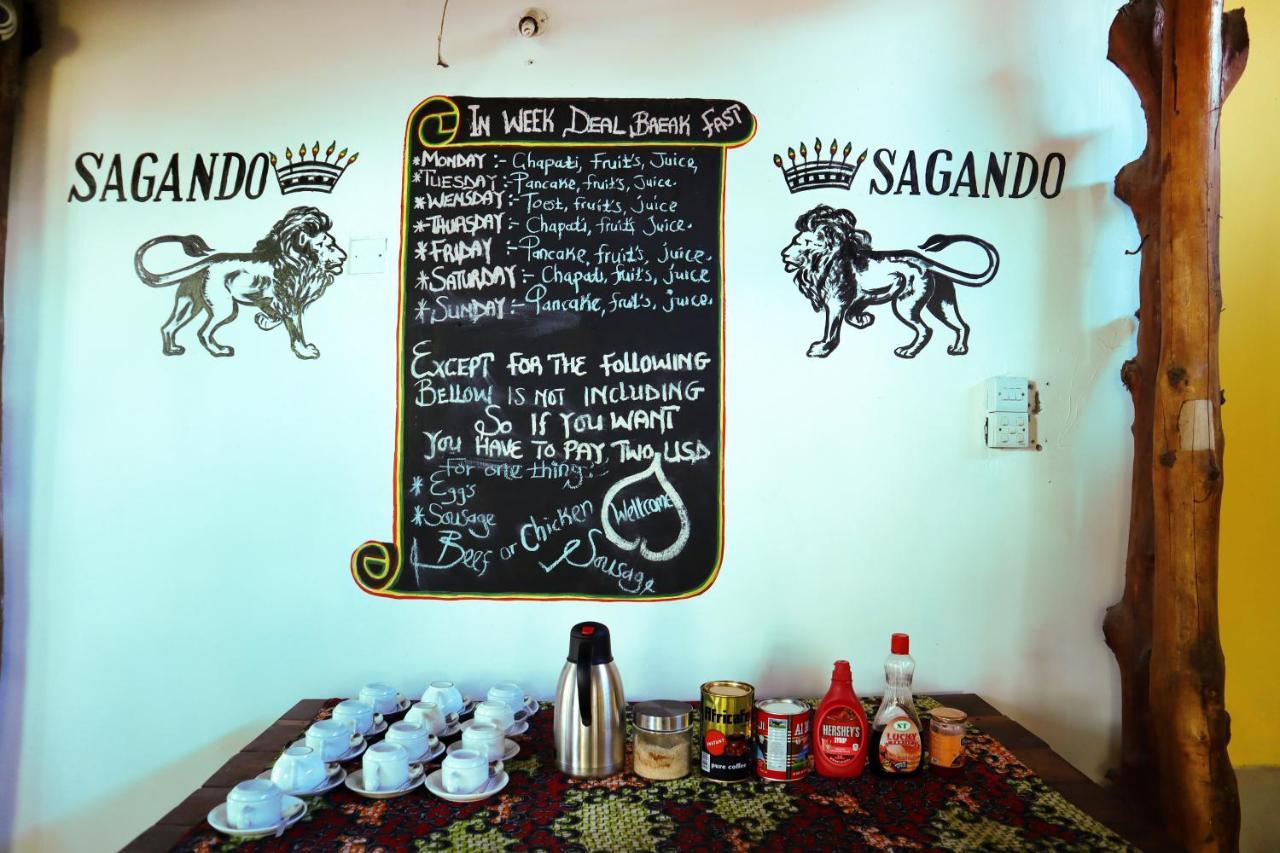 SAGANDO
SAGANDO
IN WEEK DEAL BREAK FAST
*MONDAY :- Chapati, fruit's, Juice,
*TUESDAY:- Pancake, fruit's, Juice.
*WENSDAY:- Toest, fruit's, juice
*THURSDAY:- Chapati, fruit's Juice.
*FRIDAY :- Pancake, fruit's, juice.
*SATURDAY:- Chapati, fruit's, juice
*SUNDAY:- Pancake, fruit's, juice.
EXCEPT FOR THE FOLLOWING
BELLOW IS NOT INCLUDING
SO IF YOU WANT
YOU HAVE TO PAY TWO USD
For one thing:-
* Egg's
* Sousage
Beef or Chicken
Sousage
Wellcome
Africafe
INSTANT
pure coffee
HERSHEY'S
SYRUP
ST
LUCKY